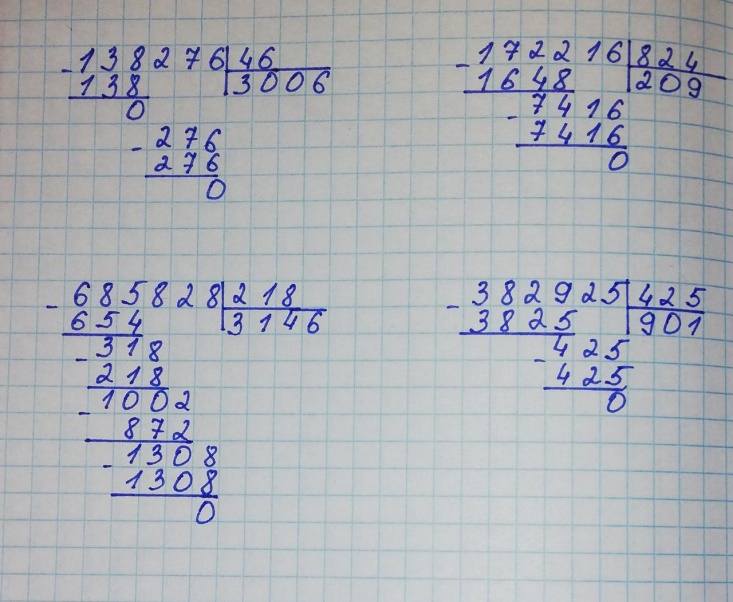 - 138276 | 46
138 | 3006
0
- 276
276
0
- 172216 | 824
1648 | 209
- 7416
7416
0
- 685828 | 218
654 | 3146
- 318
218
- 1002
872
- 1308
1308
0
- 382925 | 425
3825 | 901
- 425
425
0